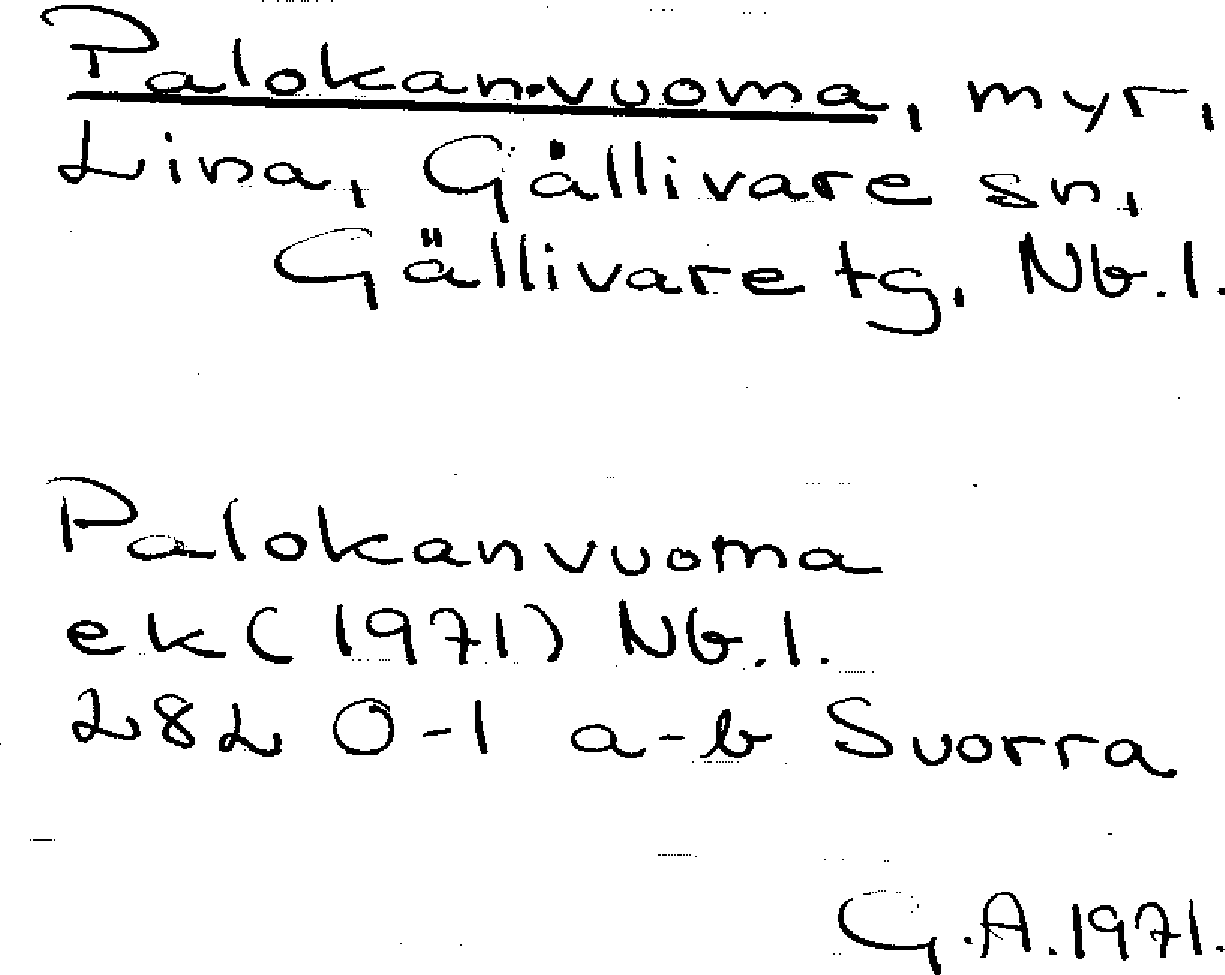 Palokan-vuoma, myr,
Lina, Gällivare sn,
Gällivare tg, Nb.l.
Palokanvuoma
ek (1971) Nb.l.
28L 0-1 a-b Suorra
G.A.1971.